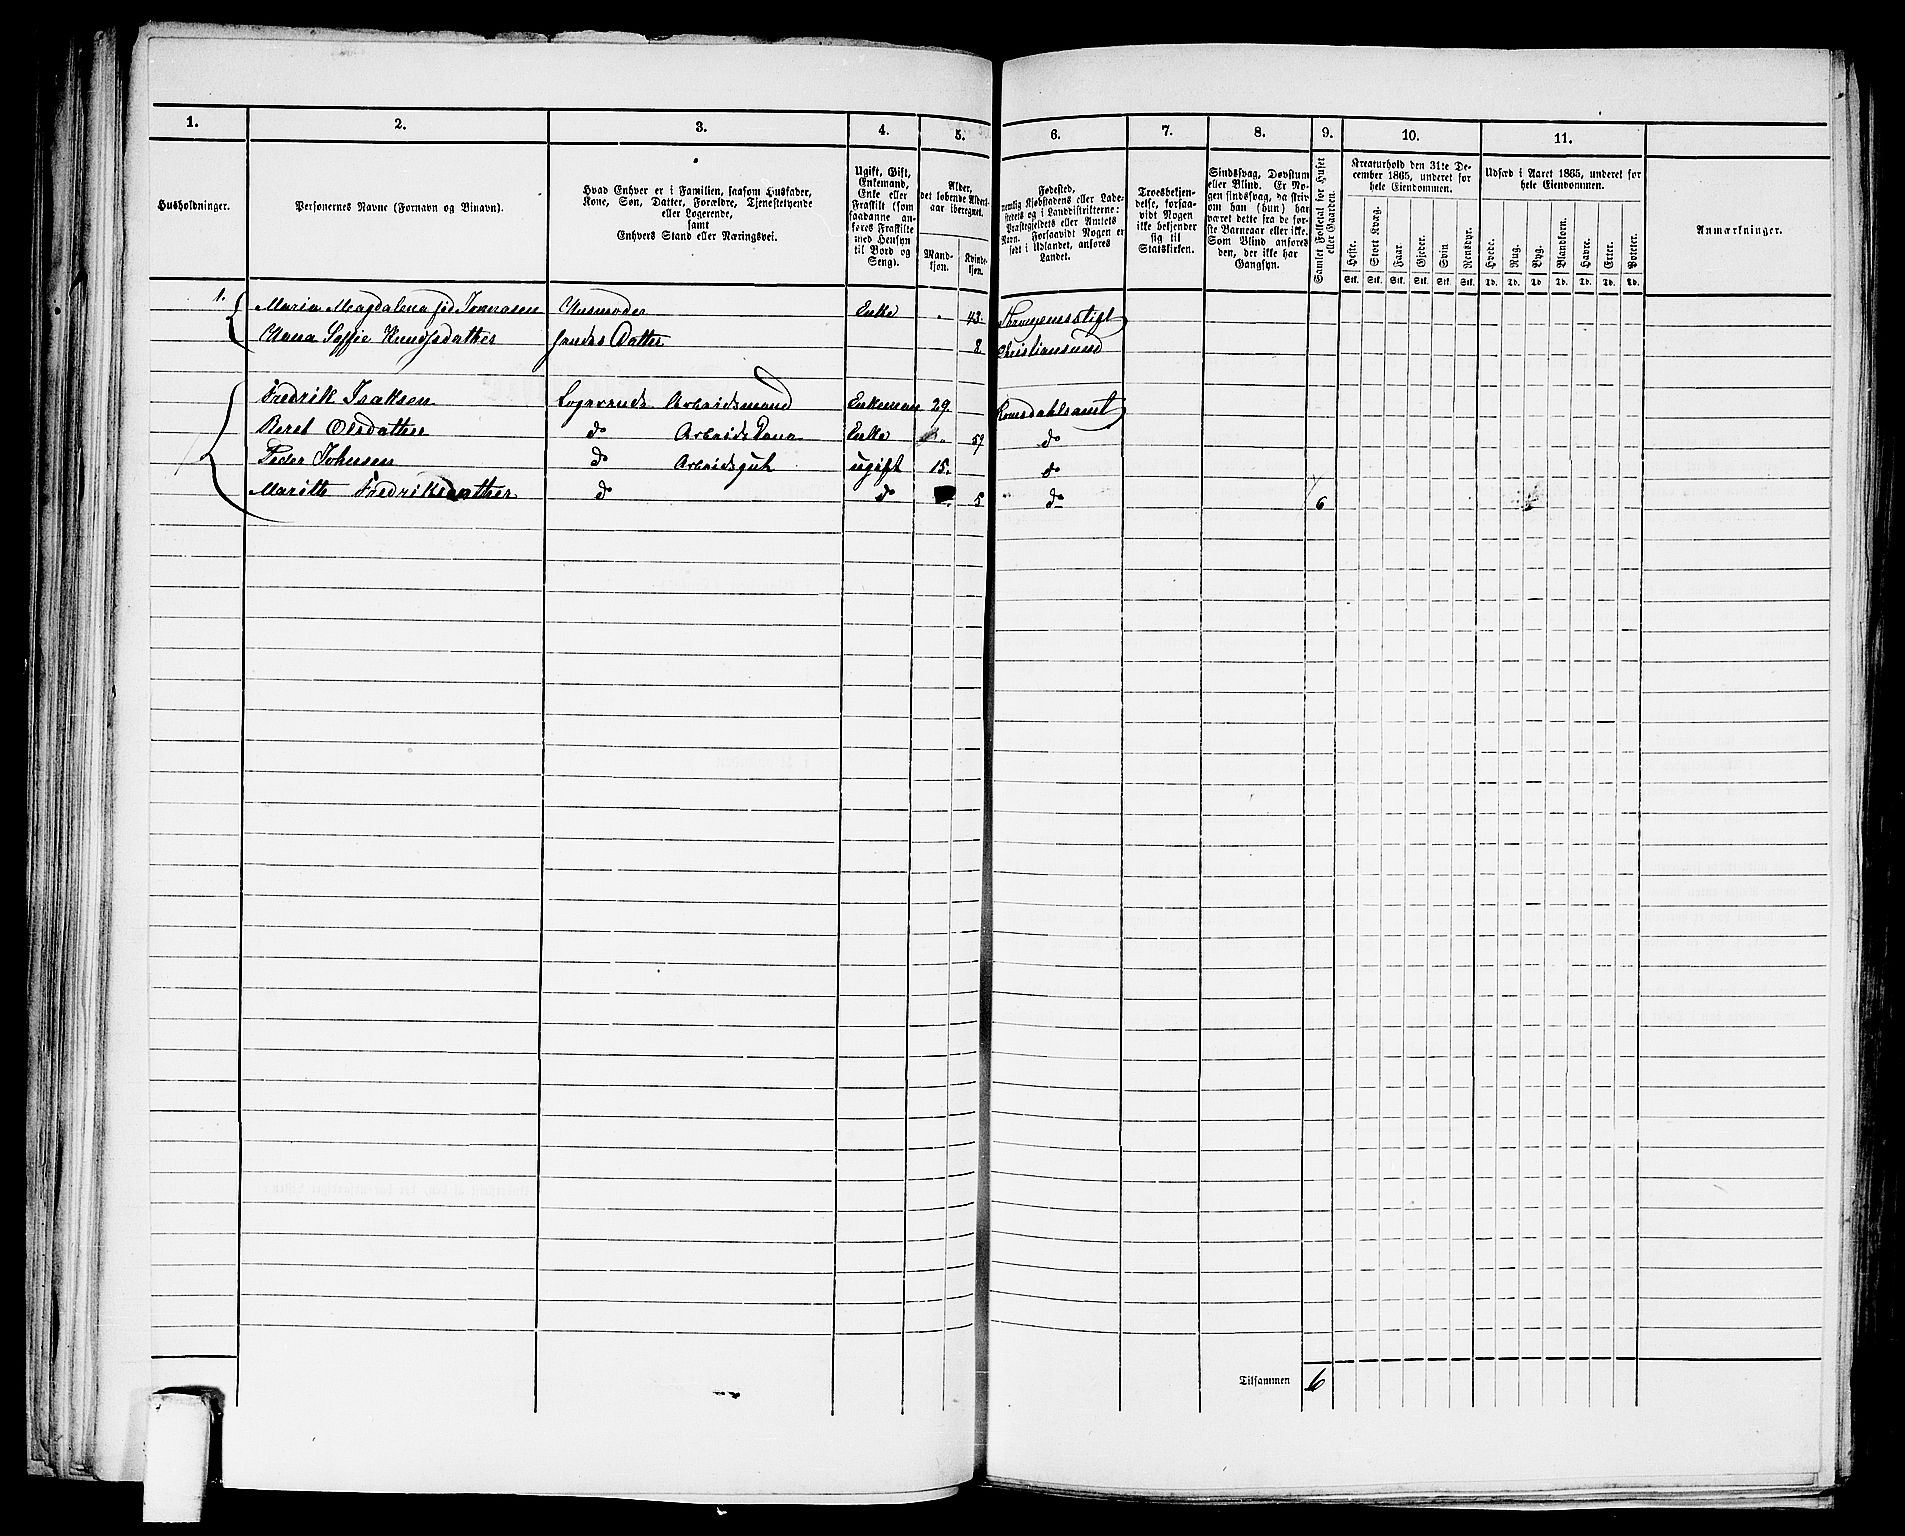 1. 2. 3. 4. 5. 6. 7. 8. 9. 10. 11.
Husholdninger.
Personernes Navne (Fornavn og Binavn).
Hvad Enhver er i Familien, saasom Husfader,
Kone, Søn, Datter, Forældre, Tjenestetyende
eller Logerende,
samt
Enhvers Stand eller Næringsvei.
Ugift, Gift,
Enkemand,
Enke eller
Fraskilt (som
saadanne an-
føres Fraskilte
med Hensyn
til Bord og
Seng).
Alder,
det løbende Alders-
aar iberegnet.
Mand-
kjøn.
Kvinde-
kjøn.
Fødested,
nemlig Kjøbstadens eller Lade-
stedets og i Landdistrikterne:
Præstegjeldets eller Amtets
Navn. Forsaavidt Nogen er
født i Udlandet, anføres
Landet.
Troesbekjen-
delse, forsaa-
vidt Nogen
ikke bekjender
sig til
Statskirken.
Sindssvag, Døvstum
eller Blind. Er No-
gen sindssvag, da skriv
om han (hun) har
været dette fra de før-
ste Barneaar eller ikke.
Som Blind anføres
den, der ikke har
Gangsyn.
Samlet Folketal for Huset
eller Gaarden.
Kreaturhold den 31te De-
cember 1865, underet for
hele Eiendommen.
Heste. Stort Kvæg. Faar. Gjeder. Svin Rensdyr.
Stk. Stk. Stk. Stk. Stk. Stk.
Udsæd i Aaret 1865, underet for
hele Eiendommen.
Hvede. Rug. Byg. Blandkorn. Havre. Erter. Poteter.
Td. Td. Td. Td. Td. Td. Td.
Anmærkninger.
1. Maria Magdalena Enke 43.
Anna Soffie Knudsdatter Datter 8 Christiansund
Fredrik Isaksen Logerende Arbeidsmand Enkeman 29. Romsdahlsamt
Beret Olsdatter do Enke do
Peder Johnsen do Arbeidsgut ugift 15. do
Maritte Fredriksdatter do do 5 do 6
Tilsammen 6